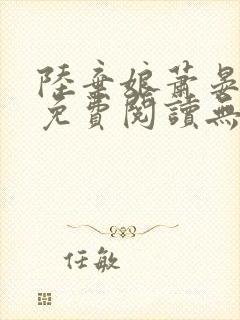 陸棄娘蕭晏
免費閱讀無
任敏